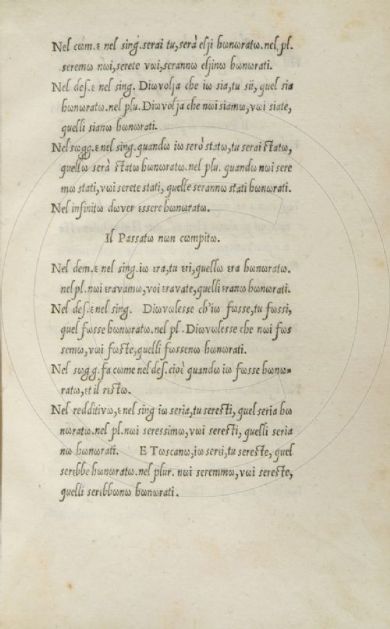 Nel cωm. ε nel sing. serai tu, serà elji hωnωratω. nel. pl.
seremω nωi, serete vωi, serannω eljinω hωnωrati.
Nel des. ε nel sing. Diωvolja che iω sia, tu sii, quel sia
hωnωratω. nel plu. Diωvolja che nωi siamω, vωi siate,
quelli sianω hωnωrati.
Nel sωgg. ε nel sing. quandω iω serò statω, tu serai statω,
quellω serà statω hωnωratω. nel pl. quandω nωi sere
mω stati, vωi serete stati, quelle serannω stati hωnωrati.
Nel infinitω dωver εssere hωnωratω.
Il Passatω nωn cωmpitω.
Nel dem. ε nel sing. iω εra, tu εri, quellω εra hωnωratω.
nel pl. nωi εravamω, voi εravate, quelli εranω hωnωrati.
Nel des. ε nel sing. Diωvωlesse ch'iω fωsse, tu fωssi,
quel fωsse hωnωratω. nel pl. Diωvωlesse che nωi fωs
semω, vωi fωste, quelli fωssenω hωnωrati.
Nel sωgg. fa cωme nel des. cioὲ quandω iω fωsse hωnω-
ratω, et il rεstω.
Nel redditivω, ε nel sing iω seria, tu seresti, quel seria hω
nωratω. nel pl. nωi seressimω, vωi seresti, quelli seria
nω hωnωrati. E Tωscanω, iω serεi, tu sereste, quel
serεbbe hωnωratω. nel plur. nωi seremmω, vωi sereste,
quelli serεbbωnω hωnωrati.